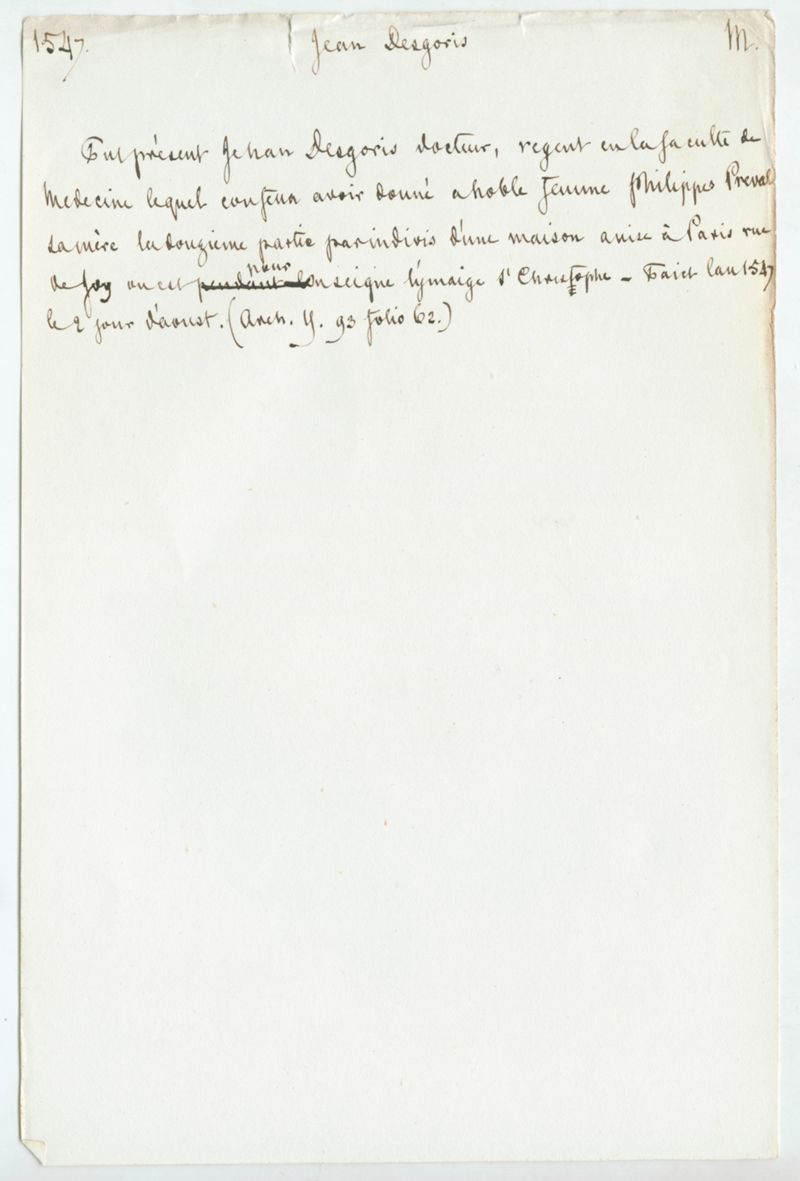 1547. Jean Desgoris M.
Fut présent Jehan Desgoris docteur, regent en la faculté de
Medecine lequel confessa avoir donné a noble femme Philippes Preval
sa mère la douzieme partie par indivis d'une maison assise à Paris rue
de Joy ou est pour enseigne lymaige St Christophe – Faict lan 1547
le 2 jour d'aoust. (Arch. Y. 93 folio 62.)